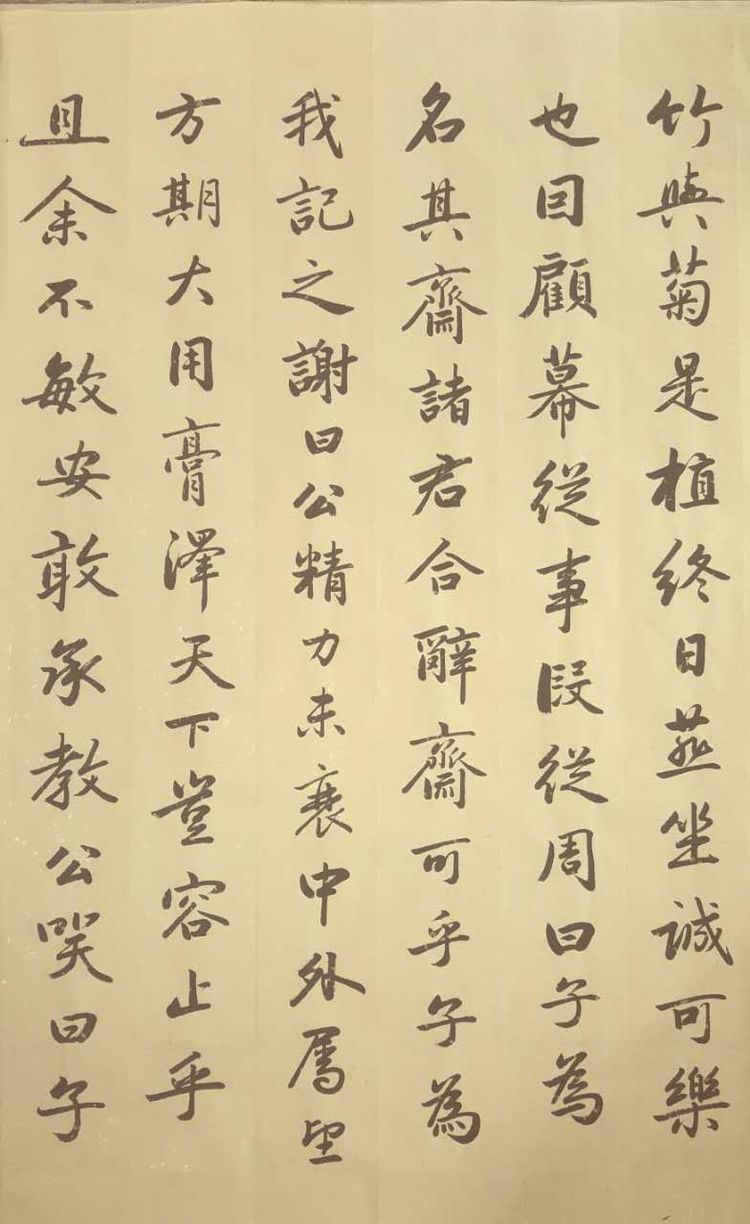 竹與菊是植終日燕坐誠可樂
也回顧幕從事段從周曰子為
名其齋諸君合辭齋可乎子為
我記之謝曰公精力未衰中外属望
方期大用膏澤天下豈容止乎
且余不敏安敢承教公笑曰子